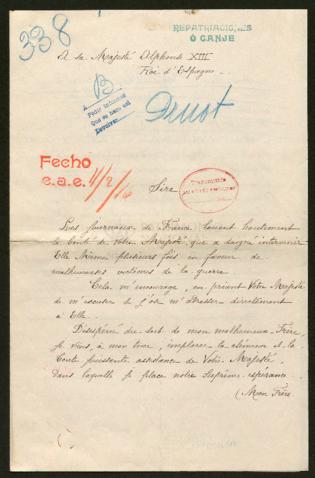 338
REPATRIACIONES
O CANJE
A sa Majesté Alphonse XIII
Roi d'Espagne.
B
Pedir informes
Que se haga así
Devolver
Fecho
e.a.e. 11/2/16
Sire
Les journaux de France, louent hautement
la bonté de Votre Majesté, que a daigné intervenir
Elle Même plusieurs fois en faveur de
malheureuses victimes de la guerre.
Cela m'encourage, en priant Votre Majesté
de m'excuser si j'ose m'adresser directement
à Elle.
Désespéré du sort de mon malheureux Frère,
je viens, à mon tour, implorer la clémence et la
toute puissante assistance de Votre Majesté,
dans laquelle je place notre Suprême espérance.
Mon Frère